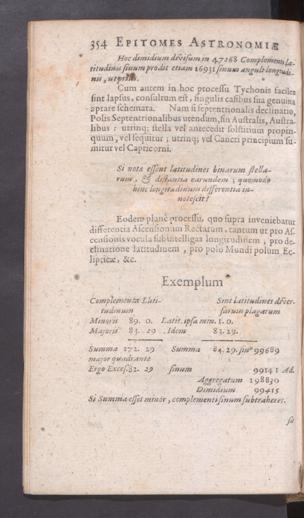 354 EPITOMES ASTRONOMIÆ
Hoc dimidium divisum in 47268 Complementi la-
titudinis sinum prodit etiam 16931 sinum anguli longitudi-
nis, ut prius.
Cum autem in hoc processu Tychonis faciles
sint lapsus, consultum est, singulis casibus sua genuina
aptare schemata. Nam si septentrionalis declinatio,
Polis Septentrionalibus utendum, sin Australis, Austra-
libus: utrinq; stella vel antecedit solstitium propin-
quum, vel sequitur; utrinq; vel Cancri principium su-
mitur vel Capricorni.
Si nota essent latitudines binarum stella-
rum, & distantia earundem; quomodo
hinc longitudinum differentia in-
notescit?
Eodem planè processu, quo supra inveniebatur
differentia Ascensionum Rectarum, tantum ut pro As-
censionis vocula subintelligas longitudinem, pro de-
clinatione latitudinem, pro polo Mundi polum Ec-
lipticæ, &c.
Exemplum
Complementæ Lati- Sint latitudines diver-
tudinum sarum plagarum
Minoris 89. 0. Latit. ipsa min. 1. 0.
Majoris 83. 29. Idem 83. 29.
Summa 172. 29 Summa 84. 29. sin⁹ 99689
major quadrante
Ergo Exces. 82. 29 sinum 99141 Ad.
Aggregatum 198830
Dimidium 99415
Si Summa esset minor, complementi sinum subtraheres.